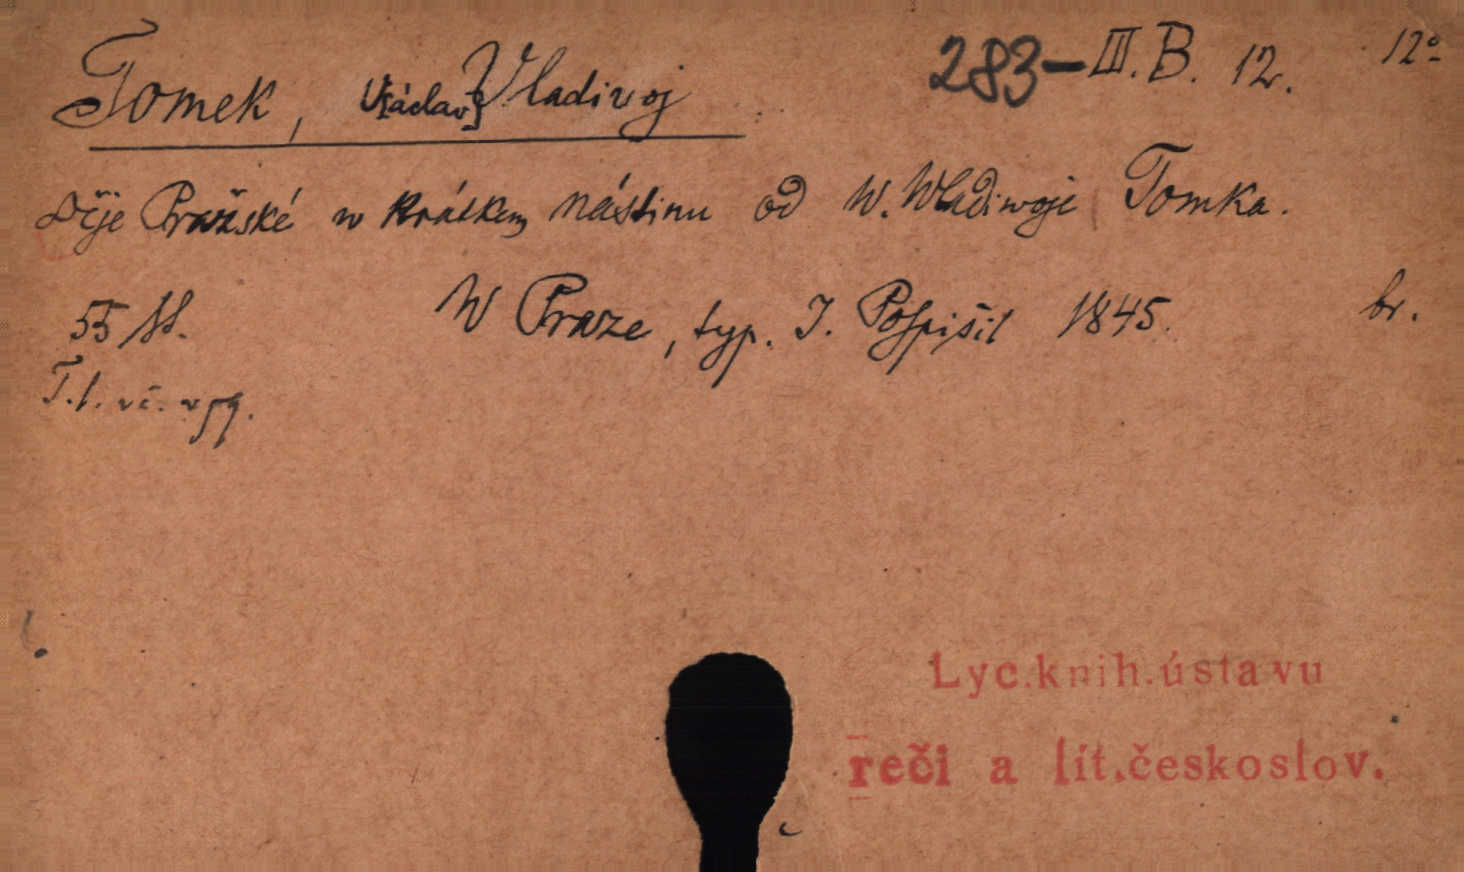 Tomek, V[áclav] Vladivoj
283-III.B. 12. 12°
Děje Pražské w krátkém nástinu od W. Wladiwoje Tomka.
55 ss. W Praze, typ. J. Pospíšil 1845. br.
Lyc.knih.ústavu
řeči a lit.českoslov.